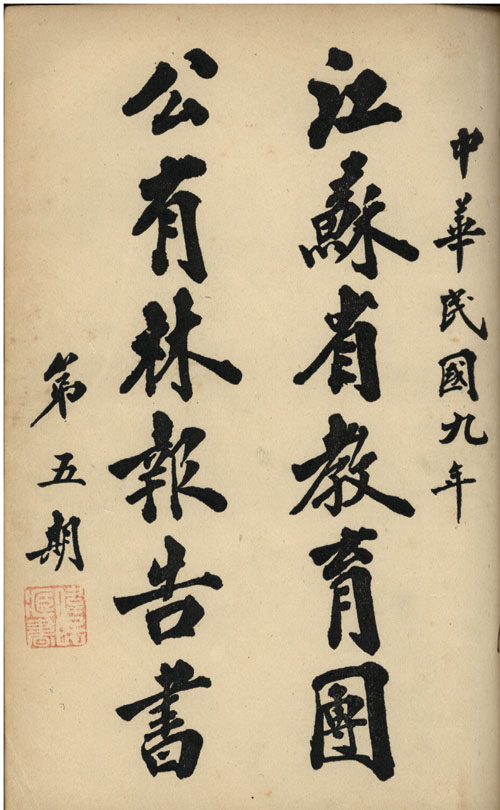 中華民國九年
江蘇省教育團
公有林報告書
第五期